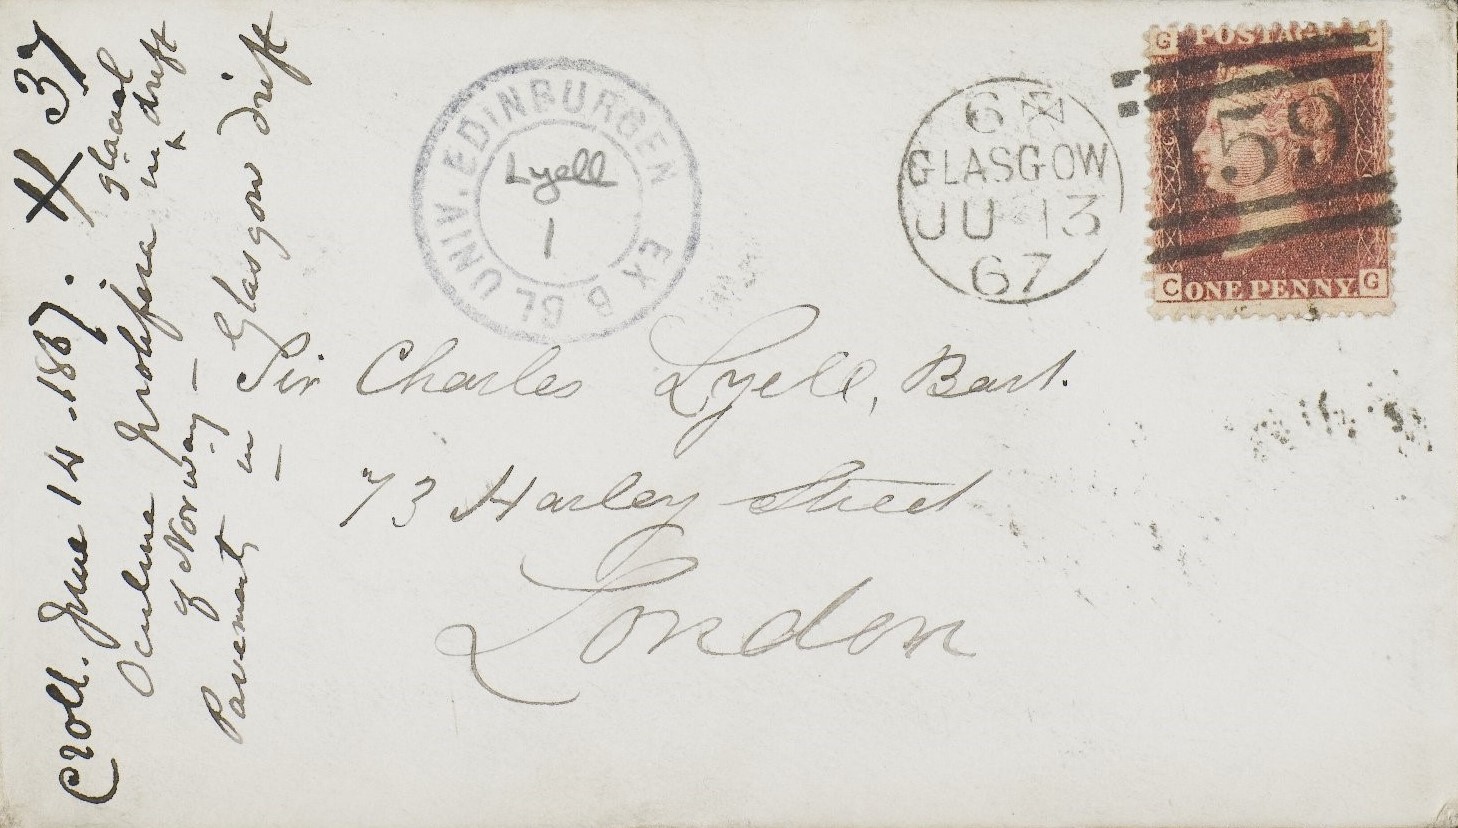 Croll. June 14. 1867. H 37
Oculina prolifera in glacial + drift
of Norway –
Pavement in Glasgow drift
–
UNIV. EDINBURGEN EX BIBL
Lyell
1
6
GLASGOW
JU 13
67
G POSTAGE C
159
C ONE PENNY G
Sir Charles Lyell, Bart.
73 Harley Street
London